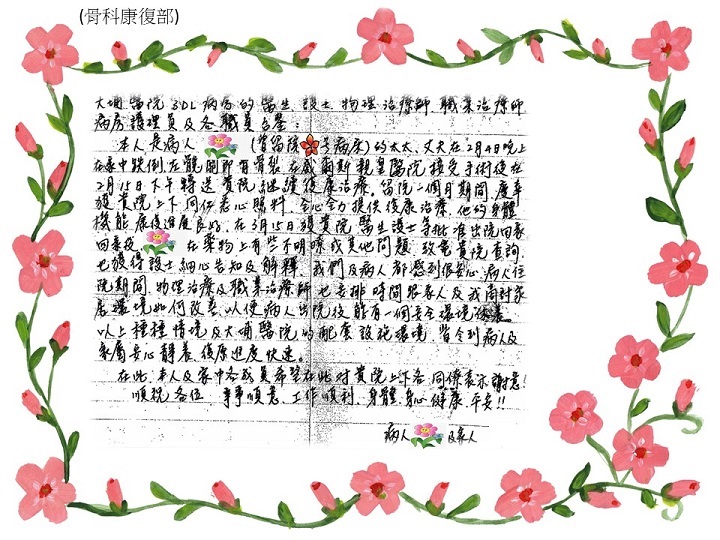 (骨科康復部)
大埔醫院 3DL 病房的醫生 護士 物理治療師 職業治療師
病房護理員及各職員台鑒：
本人是病人 (曾留院 号病床) 的太太，丈夫在2月4日晚上
在家中跌倒，左髖關節有骨裂，在威爾斯親皇醫院 接受手術後在
2月15日下午轉送貴院繼續復康治療。留院一個月期間，慶幸
獲貴院上下同仁悉心照料，全心全力提供復康治療，他的身體
機能康復進度良好，在3月15日獲貴院醫生護士等批准出院回家
回家後 在藥物上有些不明瞭或其他問題，致電貴院查詢
也獲得護士細心告知及解釋，我們及病人都感到很安心，病人住
院期間，物理治療及職業治療師也安排時間跟家人及我商討家
居環境如何改善，以使病人出院後能有一個安全環境休養
以上種種情境及大埔醫院的配套設施環境，皆令到病人及
家屬安心靜養，復原進度快速。
在此，本人及家中各成員希望在此對貴院上下各同僚表示謝意
順祝各位 事事順意，工作順利，身體，身心健康，平安!!
病人 及家人